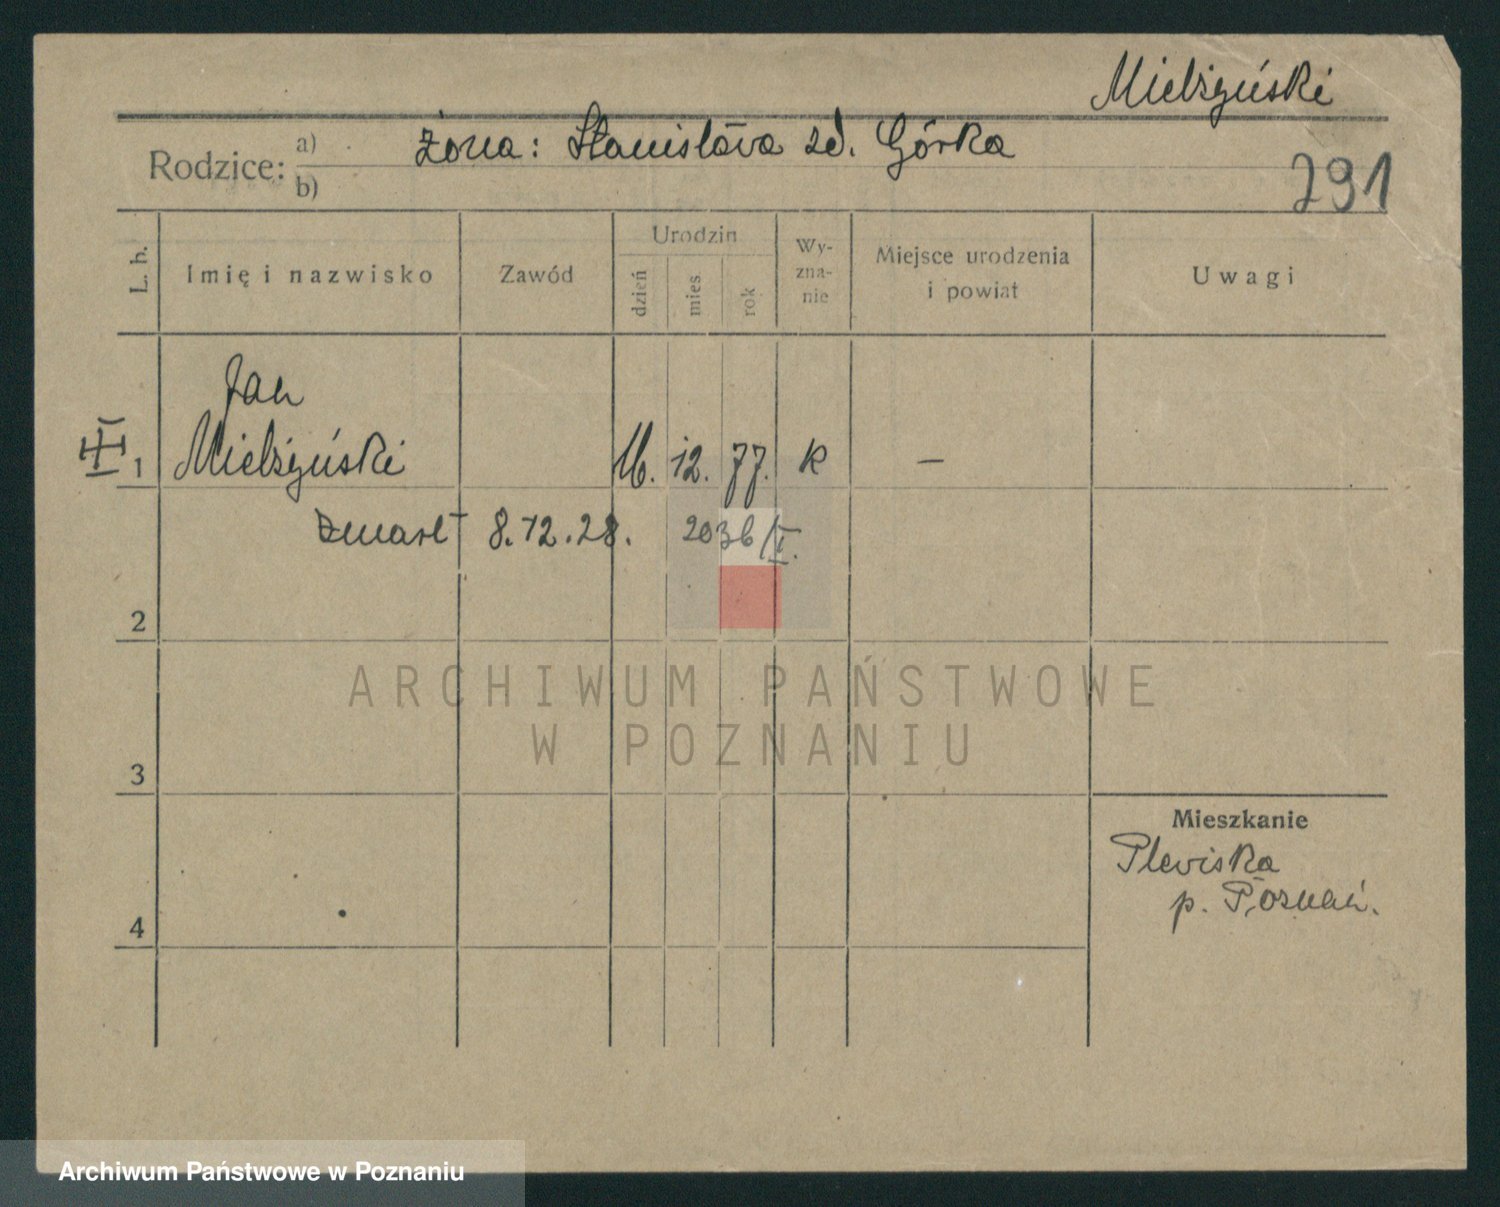 Mielżyński
żona: Stanisława zd. Górka
Rodzice: a)
b)
291
L. b.
Imię i nazwisko
Zawód
Urodzin
dzień
mies
rok
Wy-
zna-
nie
Miejsce urodzenia
i powiat
Uwagi
Jan
1 Mielżyński 16. 12. 77. K —
zmarł 8.12.28. 2036/I.
2
ARCHIWUM PAŃSTWOWE
W POZNANIU
3
Mieszkanie
Pleviska
p. Poznań.
4
Archiwum Państwowe w Poznaniu